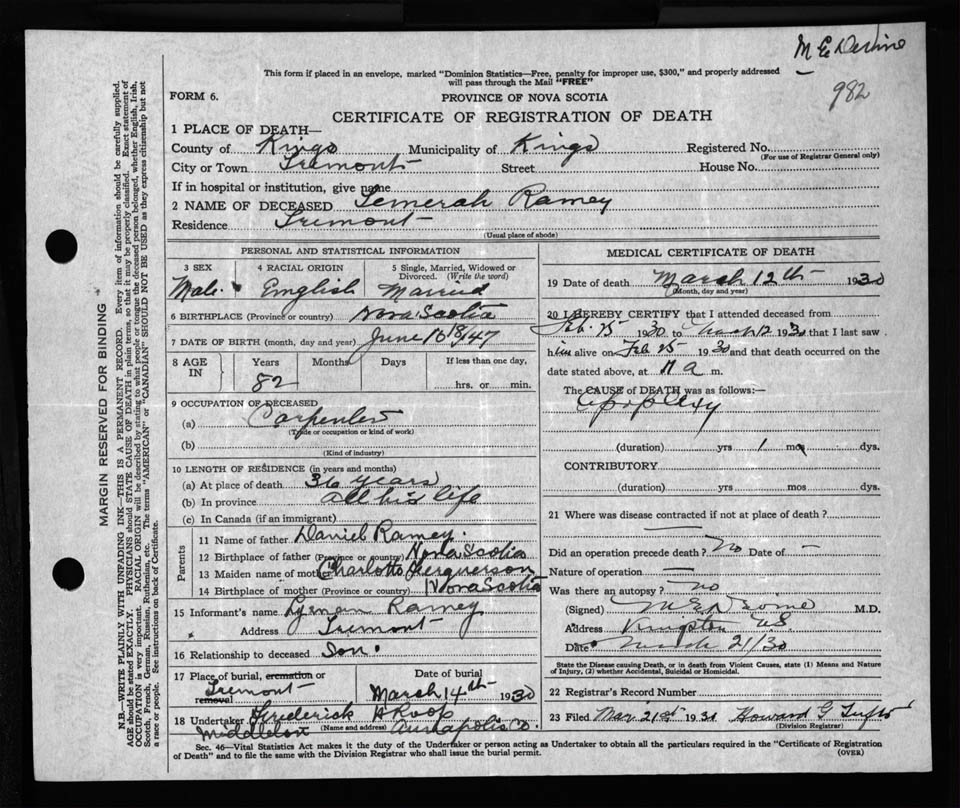 M E Devine
982
This form if placed in an envelope, marked "Dominion Statistics—Free, penalty for improper use, $300," and properly addressed
will pass through the Mail "FREE"
FORM 6.
PROVINCE OF NOVA SCOTIA
CERTIFICATE OF REGISTRATION OF DEATH
1 PLACE OF DEATH—
County of Kings Municipality of Kings Registered No.
(For use of Registrar General only)
City or Town Tremont Street House No.
If in hospital or institution, give name
2 NAME OF DECEASED Temerah Ramey
Residence Tremont
(Usual place of abode)
PERSONAL AND STATISTICAL INFORMATION
3 SEX 4 RACIAL ORIGIN 5 Single, Married, Widowed or
Divorced. (Write the word)
Male English Married
6 BIRTHPLACE (Province or country) Nova Scotia
7 DATE OF BIRTH (month, day and year) June 10 1847
8 AGE Years Months Days If less than one day,
IN 82 hrs. or min.
9 OCCUPATION OF DECEASED
(a) Carpenter
(Trade or occupation or kind of work)
(b)
(Kind of industry)
10 LENGTH OF RESIDENCE (in years and months)
(a) At place of death 36 years
(b) In province all his life
(c) In Canada (if an immigrant)
Parents
11 Name of father Daniel Ramey
12 Birthplace of father (Province or country) Nova Scotia
13 Maiden name of mother Charlotte Ferguerson
14 Birthplace of mother (Province or country) Nova Scotia
15 Informant's name Lyman Ramey
Address Tremont
16 Relationship to deceased Son.
17 Place of burial, cremation or Date of burial
removal Tremont March 14th 1930
18 Undertaker Frederick A Roop
Middleton (Name and address) Annapolis Co
MEDICAL CERTIFICATE OF DEATH
19 Date of death March 12th 1930
(Month, day and year)
20 I HEREBY CERTIFY that I attended deceased from
Feb. 25 1930 to March 12 1930 that I last saw
him alive on Feb 25 1930 and that death occurred on the
date stated above, at 11 a m.
The CAUSE of DEATH was as follows:
apoplexy
(duration) yrs 1 mos dys.
CONTRIBUTORY
(duration) yrs. mos. dys.
21 Where was disease contracted if not at place of death?
Did an operation precede death? No Date of —
Nature of operation —
Was there an autopsy? no
(Signed) M E Devine M.D.
Address Kingston N.S.
Date March 21/30
State the Disease causing Death, or in death from Violent Causes, state (1) Means and Nature
of Injury, (2) whether Accidental, Suicidal or Homicidal.
22 Registrar's Record Number
23 Filed Mar. 21st 1930 Howard G Tufts
(Division Registrar)
Sec. 46—Vital Statistics Act makes it the duty of the Undertaker or person acting as Undertaker to obtain all the particulars required in the "Certificate of Registration
of Death" and to file the same with the Division Registrar who shall issue the burial permit. (OVER)
MARGIN RESERVED FOR BINDING
N.B.—WRITE PLAINLY WITH UNFADING INK—THIS IS A PERMANENT RECORD. Every item of information should be carefully supplied.
AGE should be stated EXACTLY. PHYSICIANS should STATE CAUSE OF DEATH in plain terms, so that it may be properly classified. Exact statement of
OCCUPATION is very important. RACIAL ORIGIN will be described by stating to what people or tongue the deceased person belonged, whether English, Irish,
Scotch, French, German, Russian, Ruthenian, etc. The terms "AMERICAN" or "CANADIAN" SHOULD NOT BE USED as they express citizenship but not
a race or people. See instructions on back of Certificate.